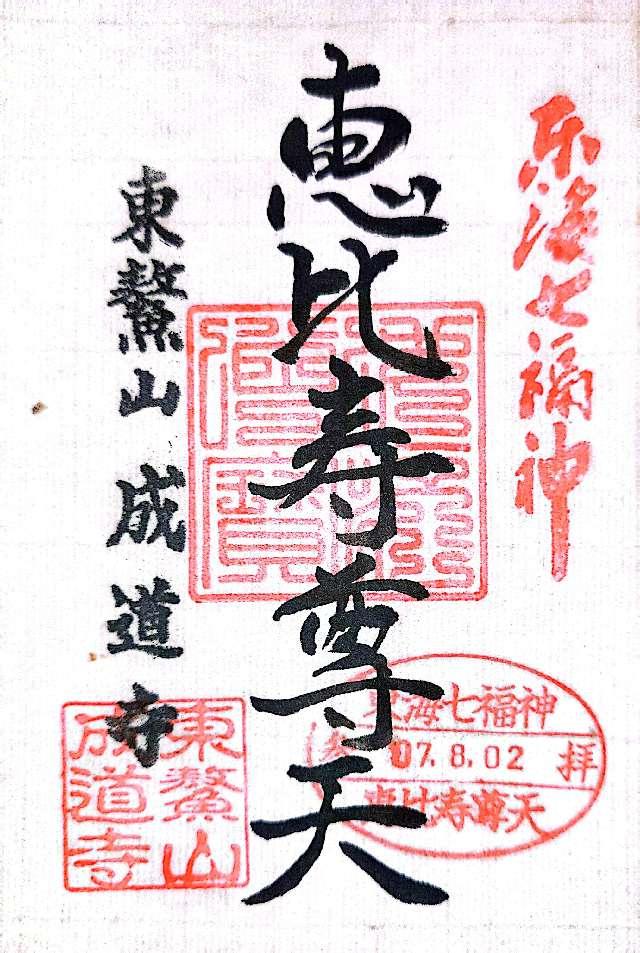 東海七福神
恵比寿尊天
東鰲山 成道寺
東海七福神
奉 07.8.02 拝
恵比寿尊天
東鰲山
成道寺